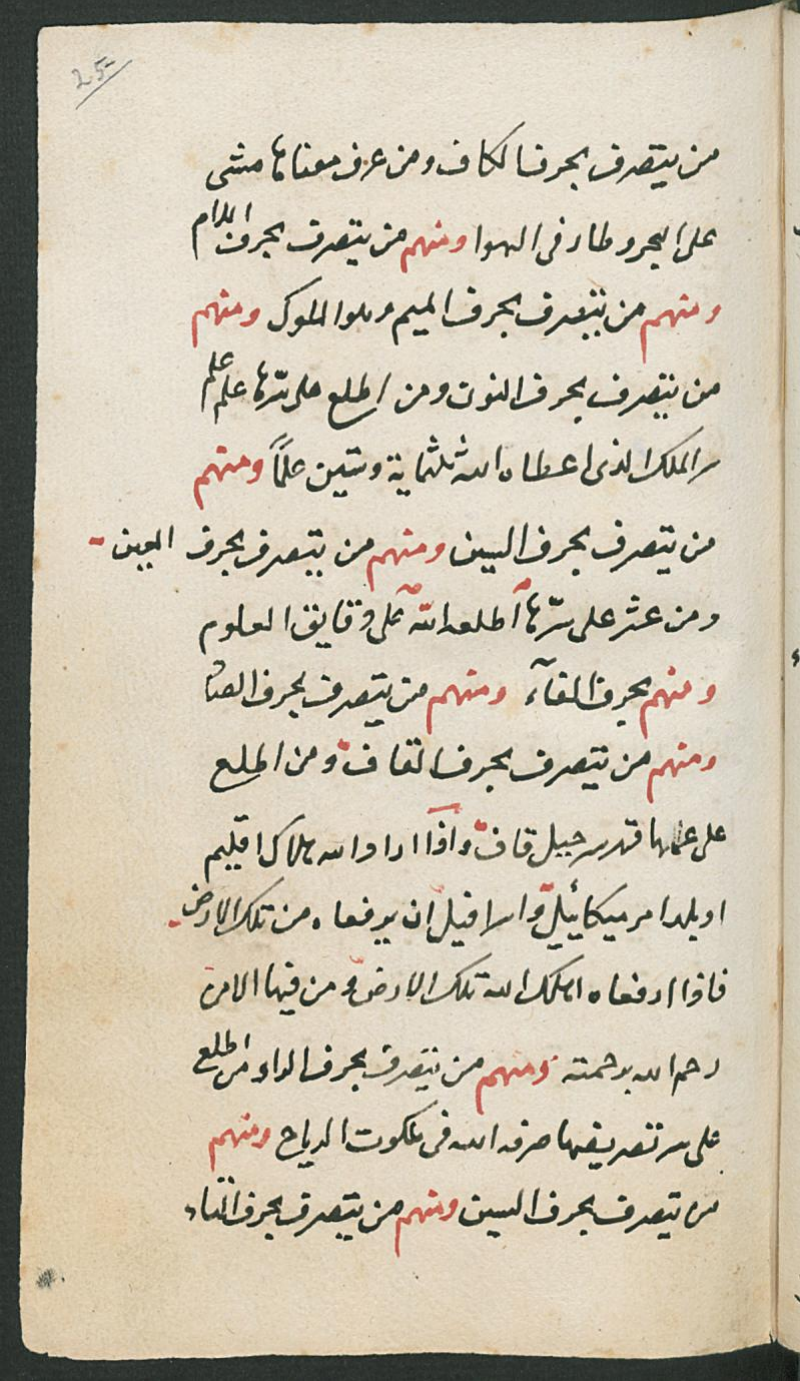 25
من يتصرف بحرف الكاف ومن عرف معناها مشى
على البحر وطار فى الهوا ومنهم من يتصرف بحرف اللام
ومنهم من يتصرف بحرف الميم وهوا الملوك ومنهم
من يتصرف بحرف النون ومن اطلع على سرّها علم علم
سر الملك الذى اعطاه الله ثلثماية وستين علمًا ومنهم
من يتصرف بحرف السين ومنهم من يتصرف بحرف العين
ومن عثر على سرّها أطلعه الله على دقايق العلوم
ومنهم بحرف الفآء ومنهم من يتصرف بحرف الصاد
ومنهم من يتصرف بحرف القاف ومن اطلع
على علمها قد سر جبل قاف واذا اراد الله هلاك اقليم
او بلد امر ميكائيل واسرافيل ان يرفعاه من تلك الارض
فاذا ارفعاه اهلك الله تلك الارض ومن فيها الا من
رحم الله برحمته ومنهم من يتصرف بحرف الراء من اطلع
على سر تصريفها صرفه الله فى ملكوت الرياح ومنهم
من يتصرف بحرف السين ومنهم من يتصرف بحرف التاء